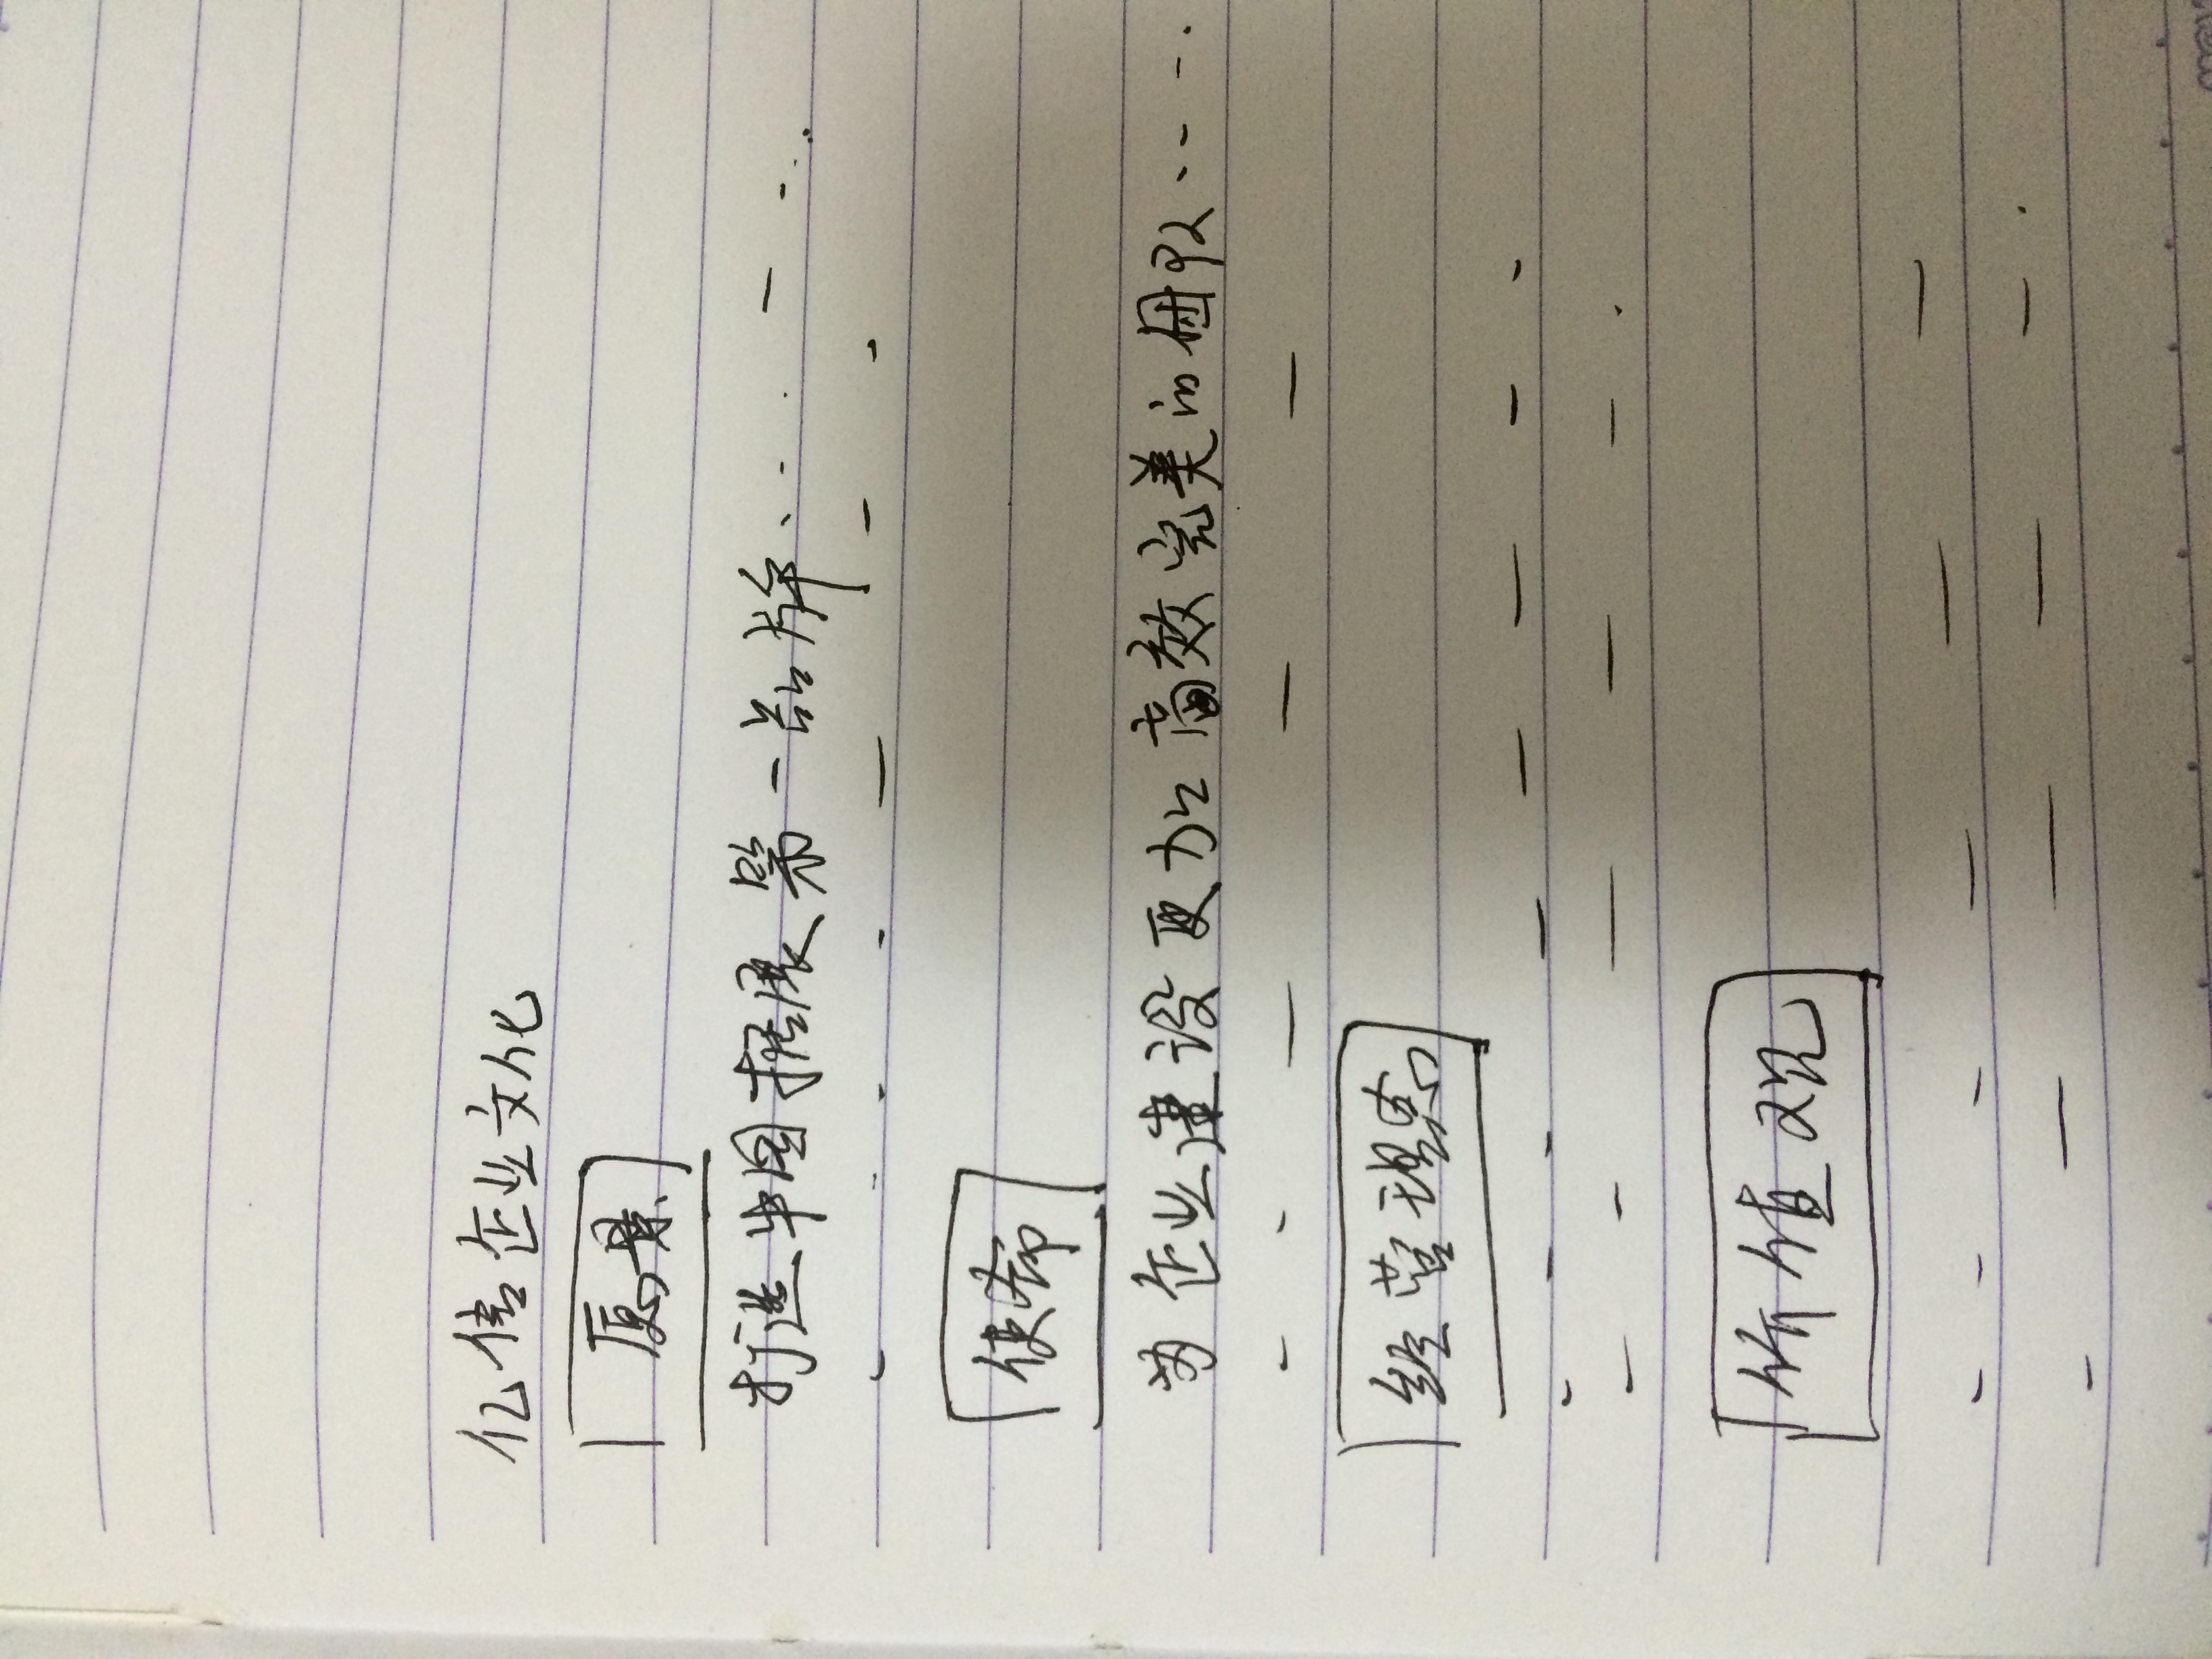 亿信企业文化
愿景
打造中国拓展第一品牌
使命
为企业建设更加高效完美的团队
经营理念
价值观